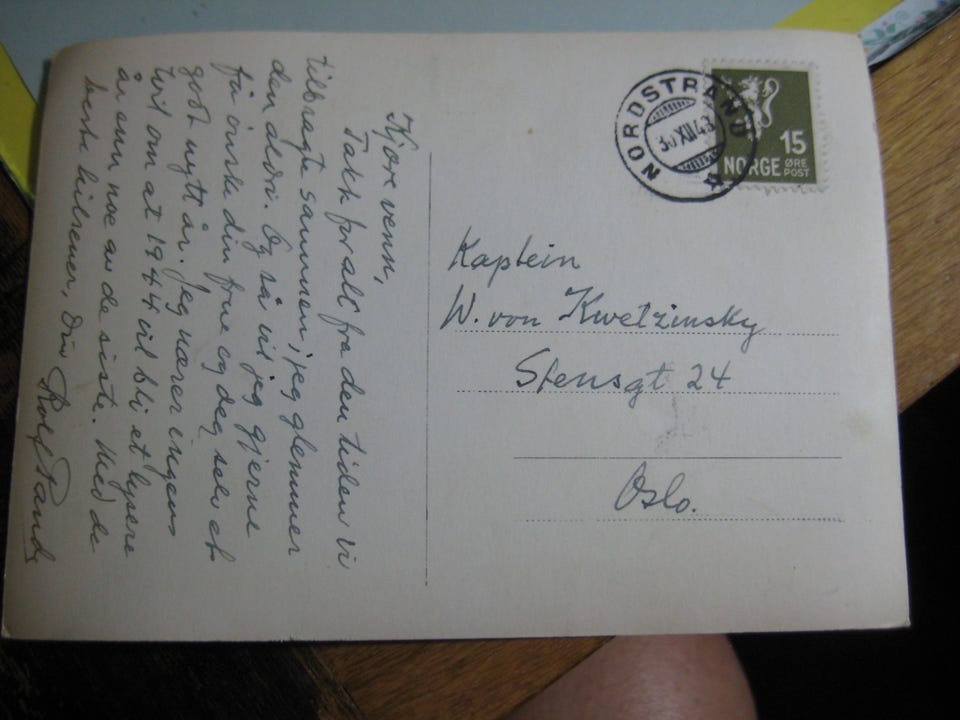 Kjære venn,
Takk for alt fra den tiden vi
tilbragte sammen, jeg glemmer
den aldri. Og så vil jeg gjerne
få ønske din frue og deg selv et
godt nytt år. Jeg nærer ingen
tvil om at 1944 vil bli et lysere
år enn noe av de siste. Med de
beste hilsener, Din Rolf
NORDSTRAND
30 XII 43
15
NORGE ØRE
POST
Kaptein
W. von Kwetzinsky
Stensgt 24
Oslo.